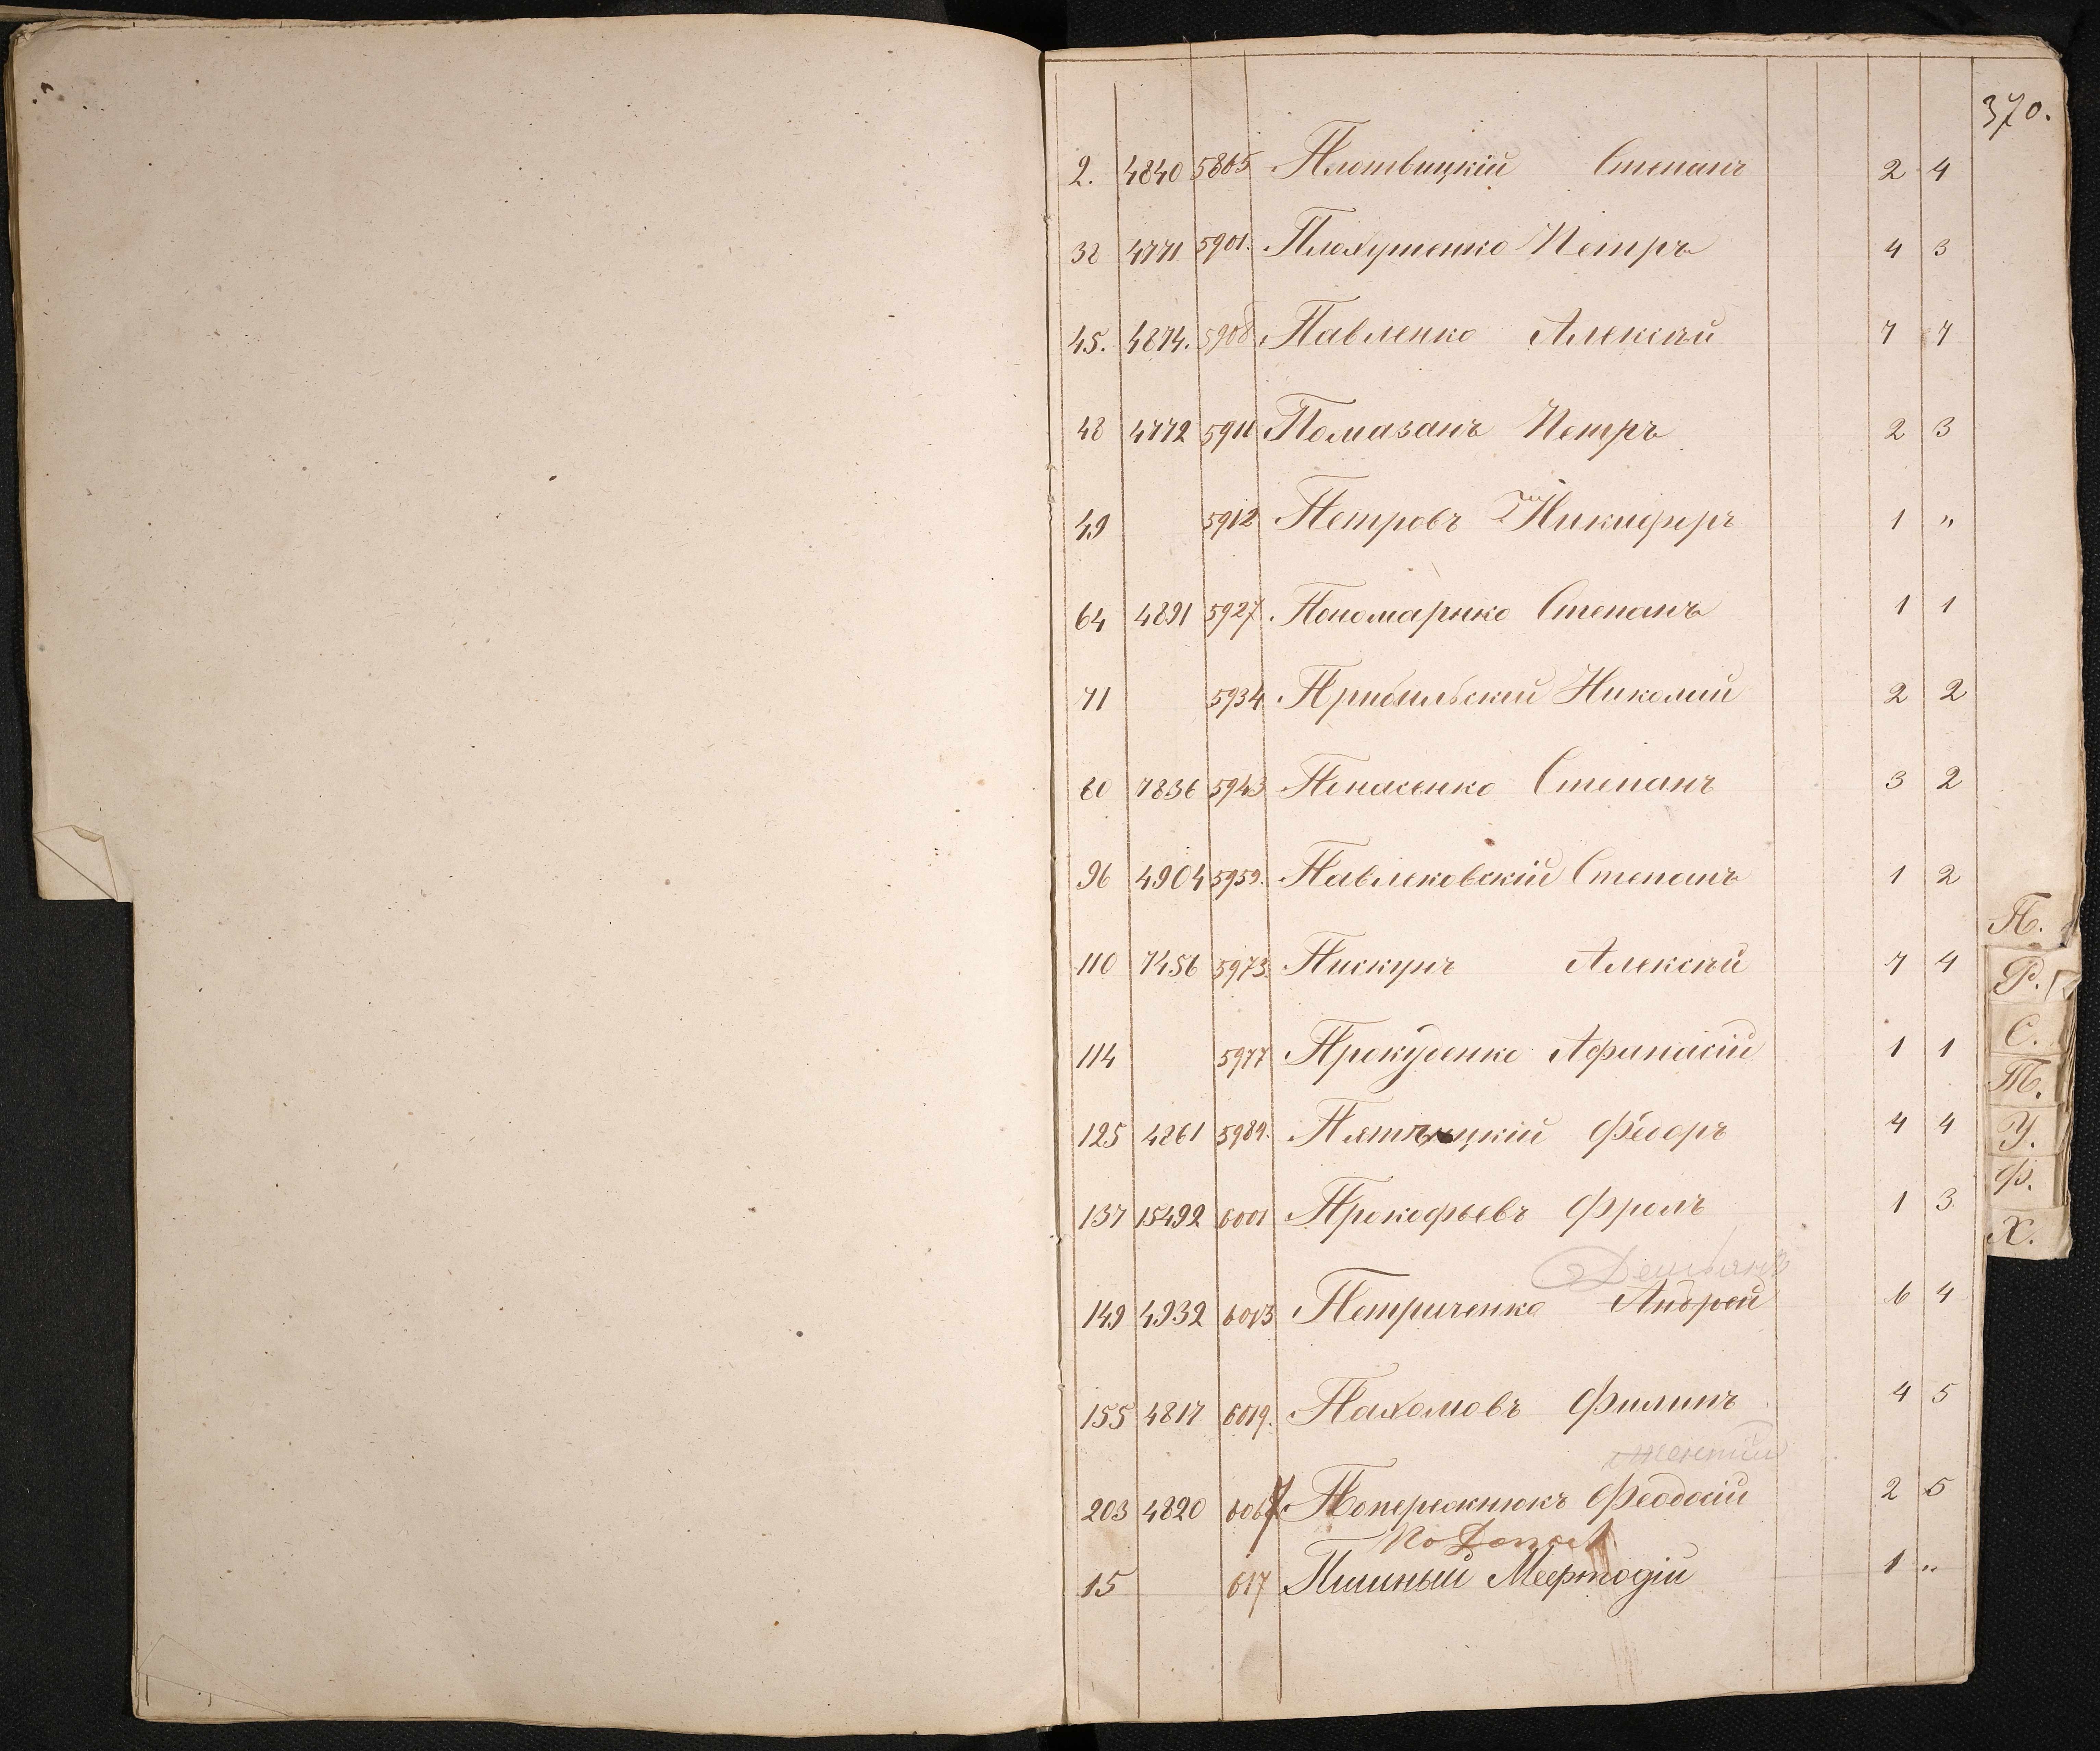 370.
2. 4840 5865 Плютвицкій Степанъ 2 4
32 4771 5901. Плохушенко Петръ 4 3
45. 4874. 5908 Павленко Алексѣй 7 7
48 4772 5911 Помазанъ Петръ 2 3
49 5912 Петровъ Никифоръ 1 "
64 4891 5927. Пономаренко Степанъ 1 1
71 5934 Прибильскій Николай 2 2
80 7836 5943 Панасенко Степанъ 3 2
96 4904 5959. Павлековскій Степанъ 1 2
П.
110 7456 5973. Пискунъ Алексѣй 7 4
Р.
С.
114 5977 Прокуденко Афанасій 1 1
Т.
125 4861 5989. цкій Федоръ 4 4
У.
Ф.
137 15492 6001 Прокофьевъ Фролъ 1 3
Х.
Демьянъ
149 4932 6013 Петриченко Андрей 6 4
155 4817 6019. Пахомовъ Филипъ 4 5
203 4820 6067 Попережнюкъ Феодосій 2 5
15 617 Пишный Мефтодій 1 "